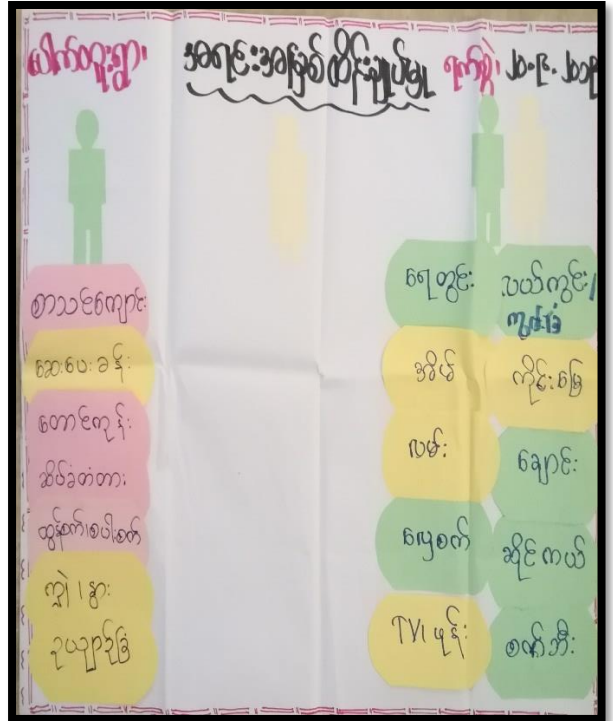 ပေါက်တူးရွာ၊ အရင်းအမြစ်ထိန်းချုပ်မှု ရက်စွဲ၊ ၂၁.၉.၂၀၁၉
စာသင်ကျောင်း
ဆေးပေးခန်း
တောင်ကုန်း
ဆိပ်ခံတံတား
ထွန်စက်၊စပါးစက်
ကျွဲ၊နွား
ဥယျာဉ်ခြံ
ရေတွင်း
အိမ်
လမ်း
လှေစက်
TV၊ ဖုန်း
လယ်ကွင်း/
ကွင်းခြံ
ကိုင်းမြေ
ချောင်း
ဆိုင်ကယ်
စက်ဘီး